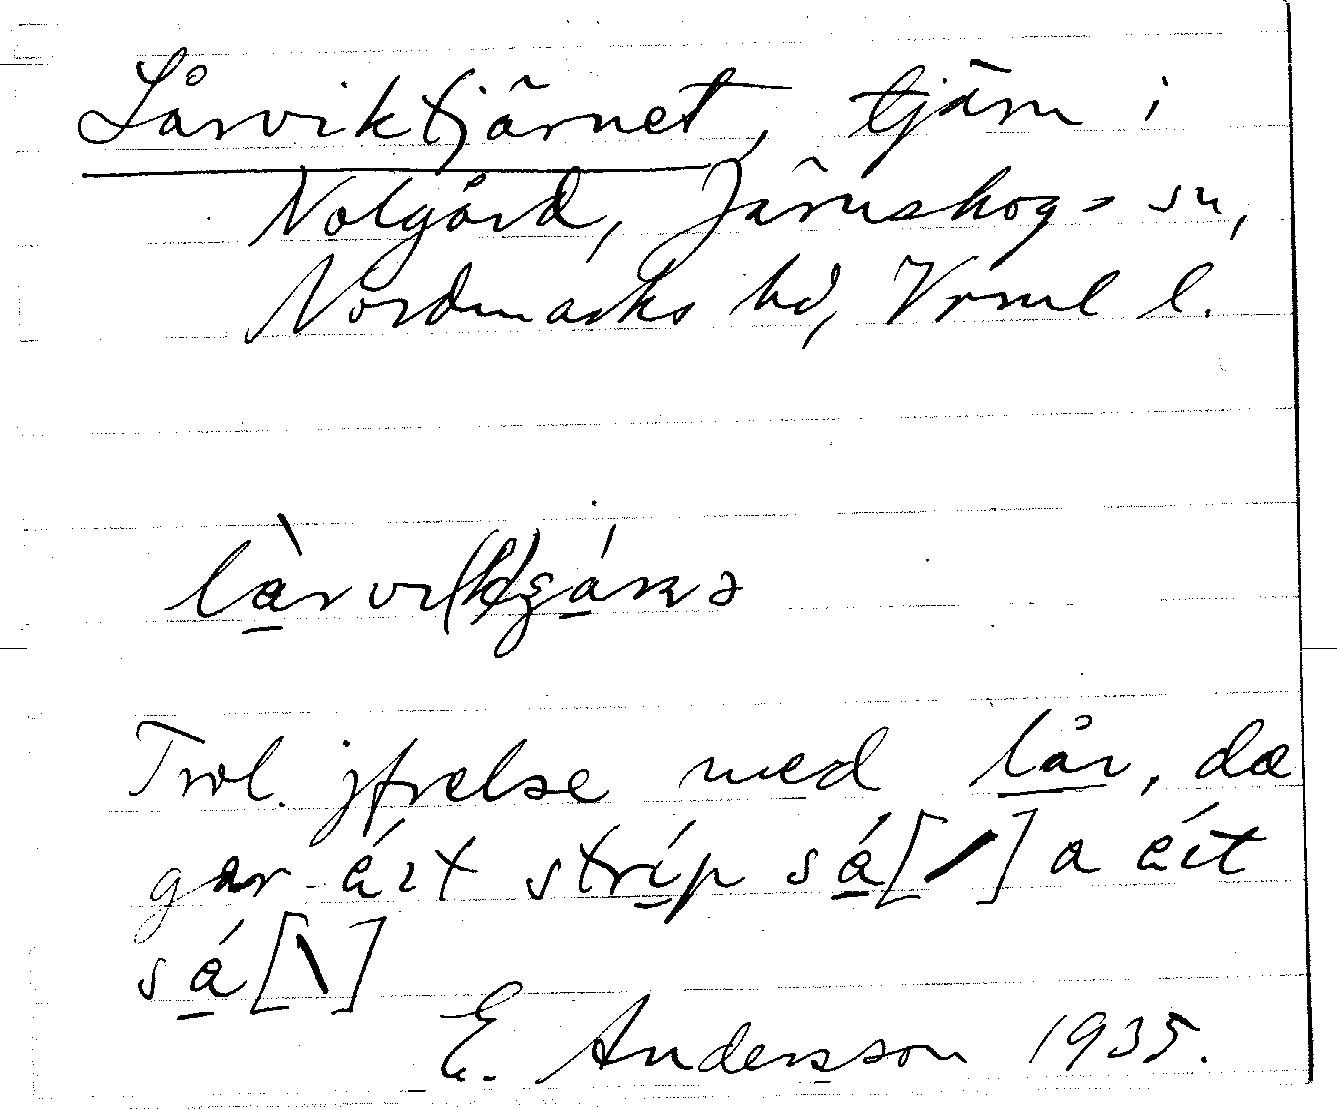 Lårviktjärnet, tjärn i
Nolgård, Järnskogs sn,
Nordmarks hd, Vrml l.
làrvi(k)
Trol. jfrelse med lår, dæ
gar äit stríp sá[/] a äit
sá[\]
E. Andersson 1935.